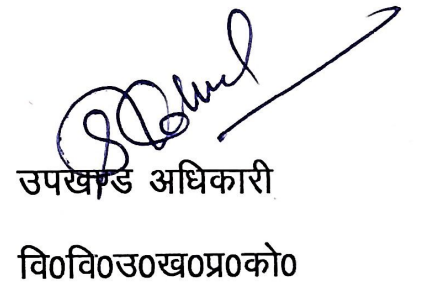 उपखण्ड अधिकारी
वि0वि0उ0ख0प्र0को0